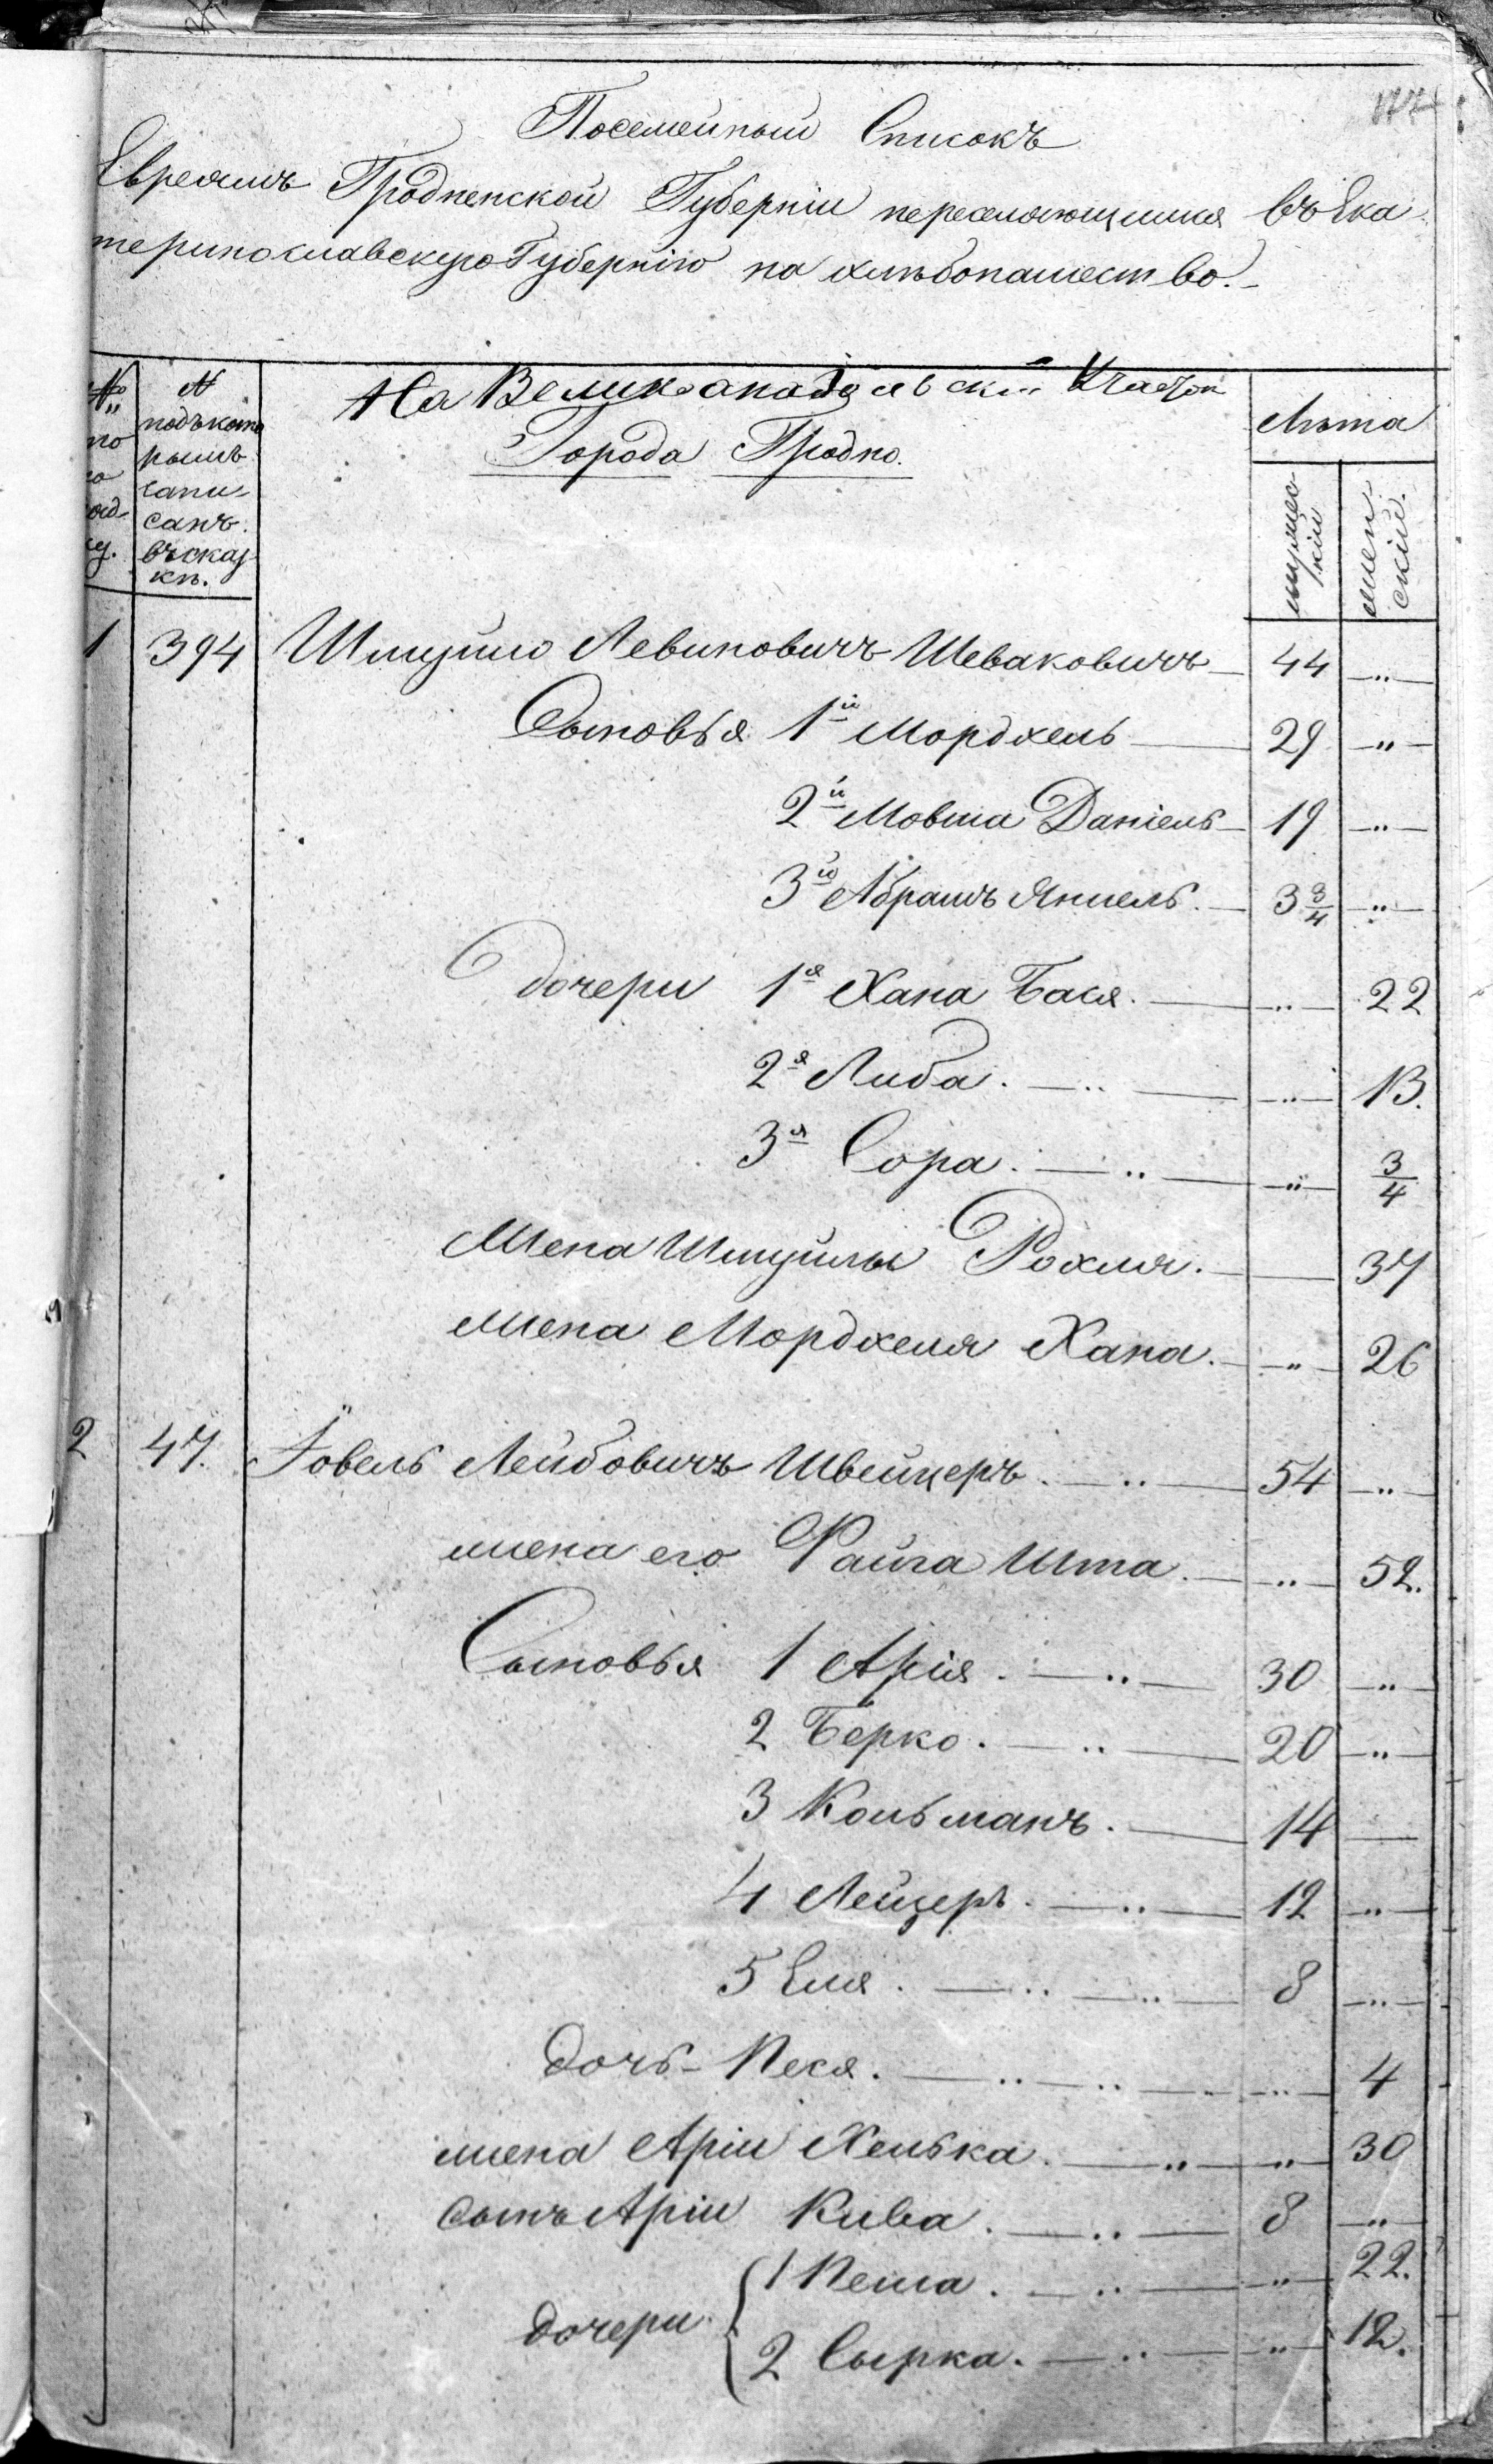 Посемейный Списокъ
Евреямъ Гродненской Губерніи переселяющимся въ Ека
теринославскую Губернію на хлѣбопашество.
№ подъ кото
рымъ
запи
санъ
въ сказ
кѣ.
На Великоанадольскій Участок
Города Гродно.
Лѣта
мужес
кія
жен
скія.
1 394 Шмуйло Левиновичъ Шеваковичъ 44 "
Сыновья 1й Мордхель 29 "
2й Мовша Даніель 19 "
3й Абрамъ Янкель. 3 3/4 "
Дочери 1я Хана Бася. " 22
2я Либа. " 13.
3я Сора. " 3/4
Жена Шмуйлы Рохля. 37
Жена Мордхеля Хана. " 26
2 47. Говель Лейбовичъ Швейцеръ. 54 "
жена его Файга Ита. " 52.
Сыновья 1 Арія. 30 "
2 Берко. 20 "
3 Кольманъ. 14
4 Лейзеръ. 12 "
5 Еля. 8 "
Дочь Песя. " 4
жена Аріи Хелька. " 30
Сынъ Аріи Кива. 8 "
дочери 1 Пеша. " 22.
2 Сырка. " 12.